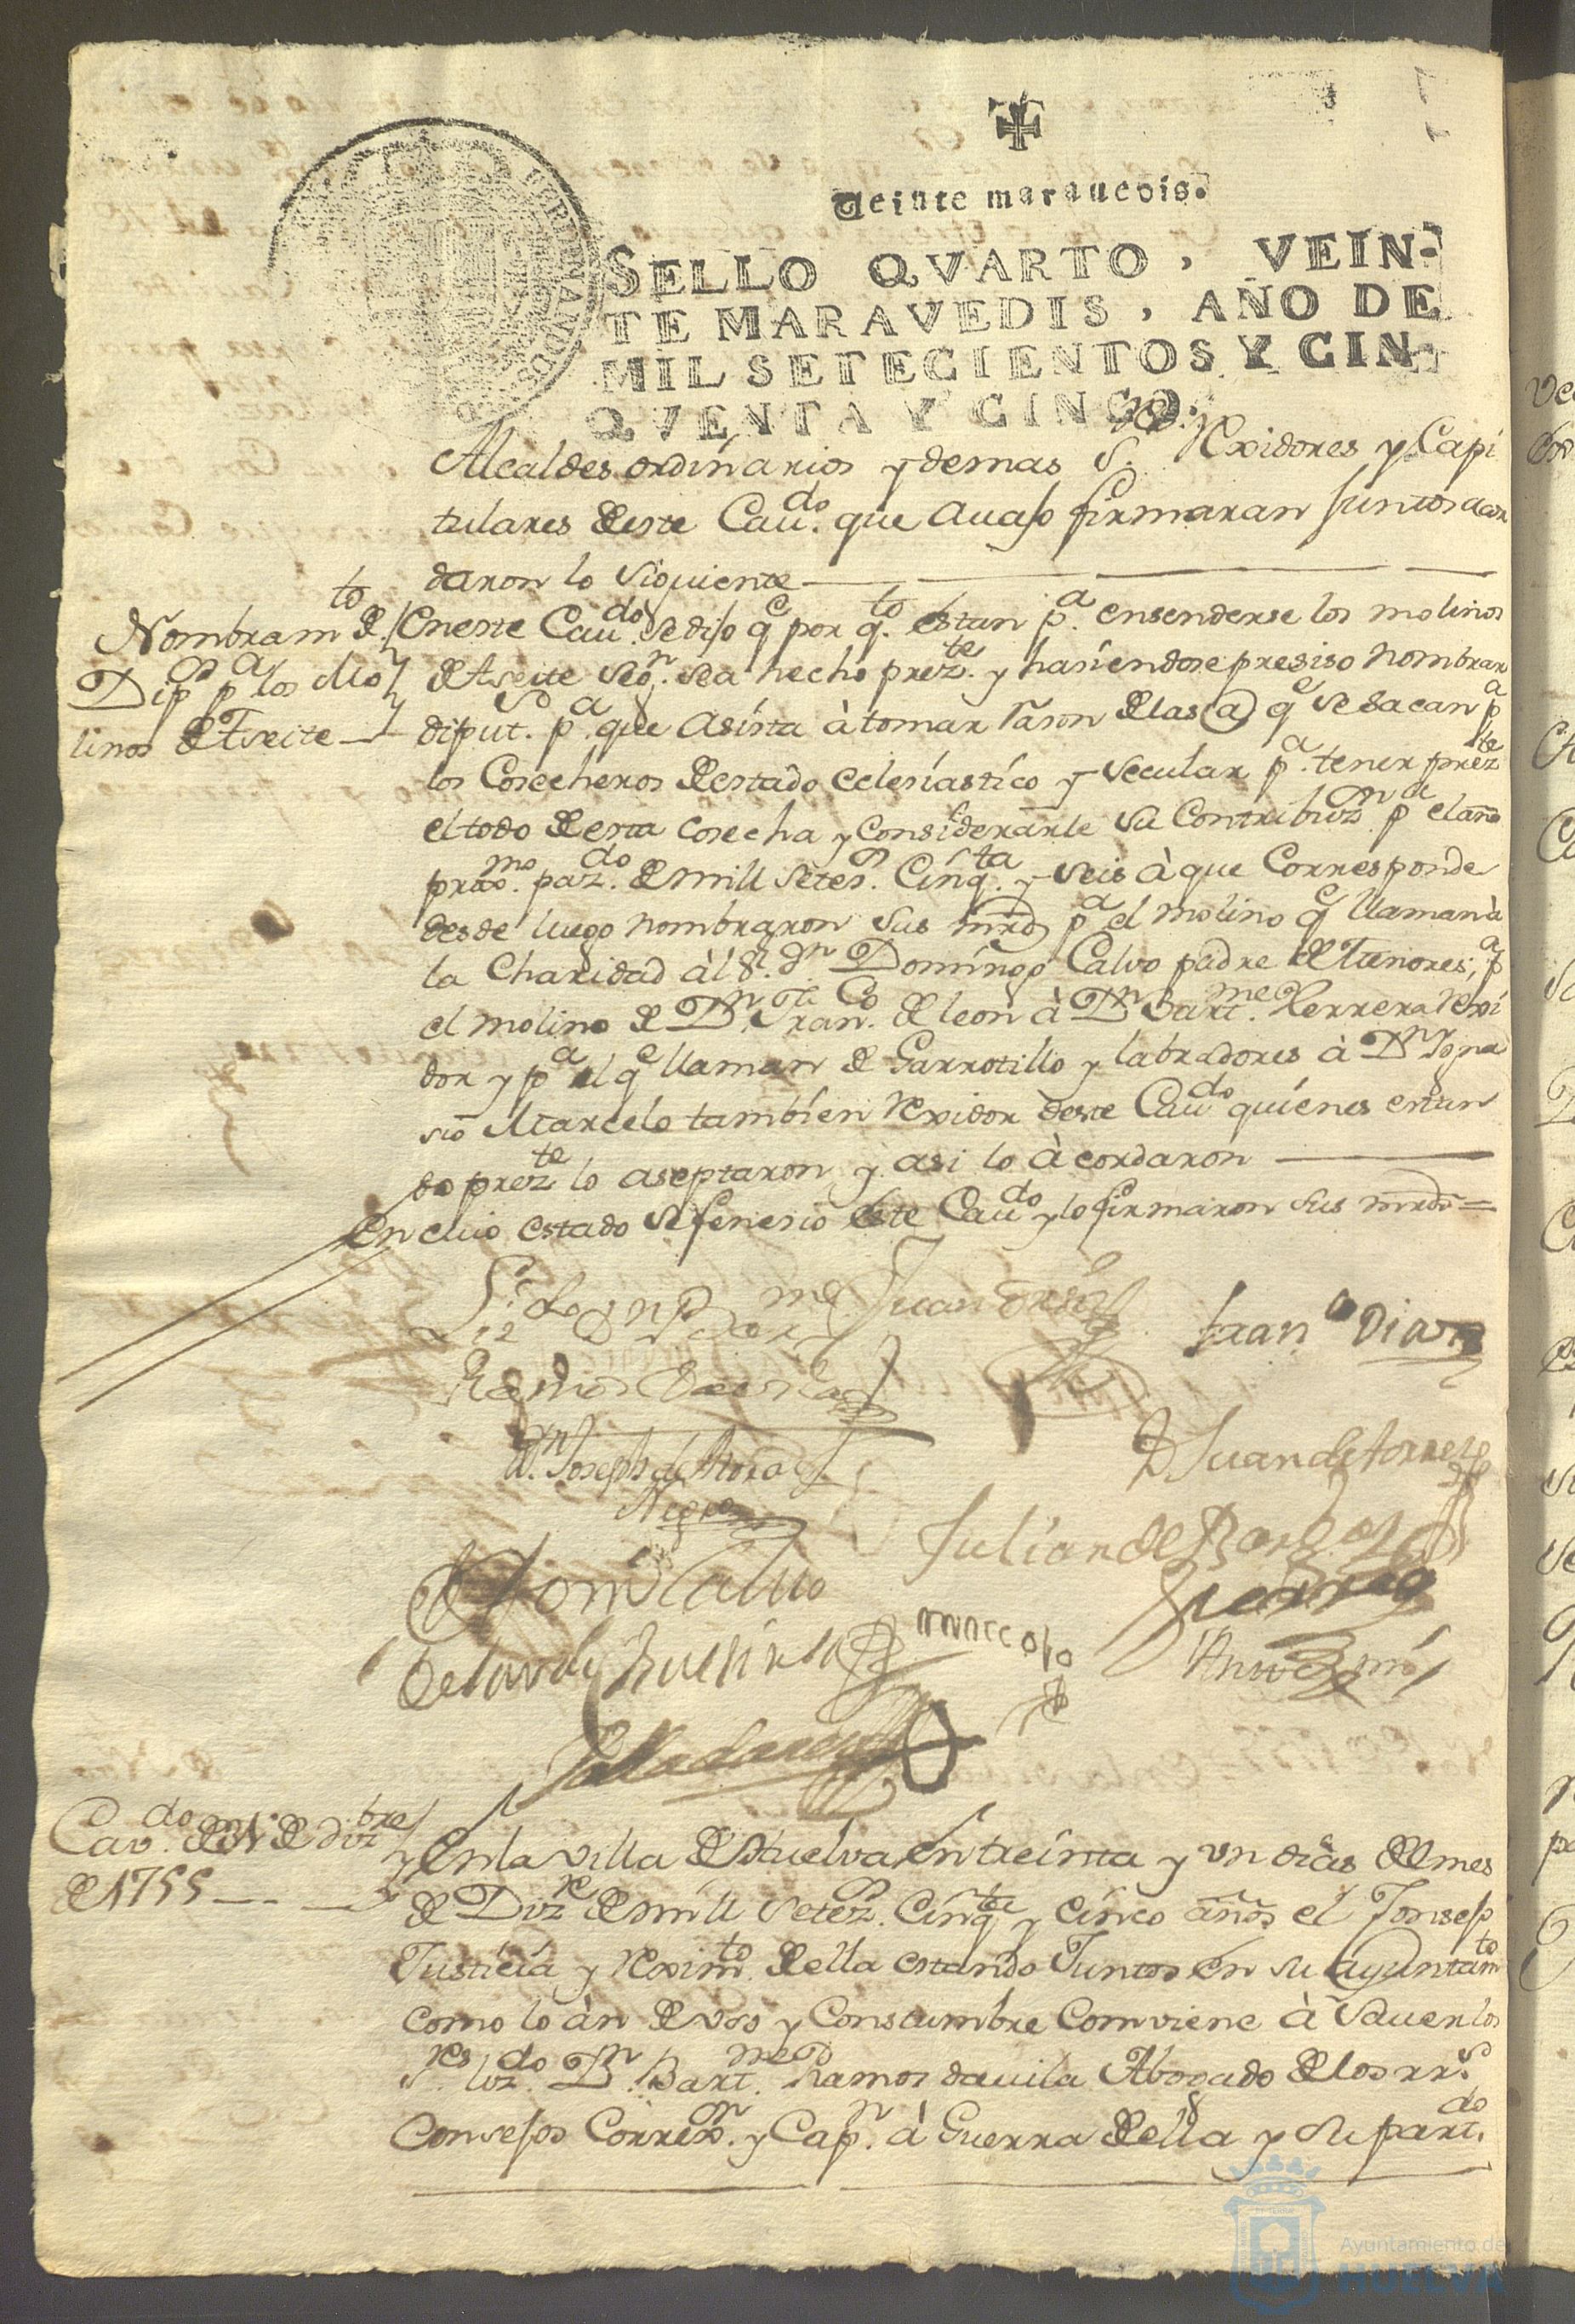 Veinte marauedis.
SELLO QVARTO, VEIN-
TE MARAVEDIS, AÑO DE
MIL SETECIENTOS Y CIN-
QVENTA Y CINCO.
Alcaldes ordinarios y demas S.res Rexidores y Capi
tulares deste Cau.do que auajo firmaran juntos acor
daron lo siguiente
Nombram.to de
Dip.os p.a los Mo
linos de Aseite
En este Cau.do se dijo q.e por q.to estan p.a ensenderse los molinos
de Aseite seg.n sea hecho prez.te y hasiendose presiso nombrar
diput.os p.a que asista à tomar rason de las @ q.e se sacan p.a
los Cosecheros de estado eclesiastico y secular p.a tener prez.te
el todo de esta cosecha y considerarle su Contribuz.n p.a el año
prox.mo paz.do de mill setes.s Cinq.ta y seis à que Corresponde
desde luego nombraron sus mrds p.a el molino q.e llaman à
la Charidad àl S.r D.n Domingo Calvo padre de Menores, p.a
el molino de D.n Fran.co de leon à D.n Bart.me Herrera Rexi
dor y p.a el q.e llaman de Garrotillo y labradores à D.n Ygna
sio Marcelo tambien Rexidor deste Cau.do quienes estan
do prez.te lo aseptaron y asi lo àcordaron
En cuio estado se fenesio este Cau.do y lo firmaron sus mrds =
L.do D.n Bar.me
Juan
Fran.co Diaz
Ramos Davila
D.n Joseph de Mora
Negro
D Juan de Torres
Julian de
Dom.o Calvo
Herrera
Marcelo
Ante mi
Valladares
Cav.do de 31 de diz.bre
de 1755
En la villa de Huelva en treinta y un dias del mes
de Diz.re de mill setez.s Cinq.ta y cinco años el Consejo
Justicia y Rexim.to de ella estando Juntos en su ayuntam.to
como lo àn de uso y Constumbre Comviene à Sauer los
S.res liz.do D.n Bart.me Ramos dauila Abogado de los rr.s
Consejos Correx.or y Cap.n à Guerra de ella y su part.do
Ayuntamiento de
HUELVA